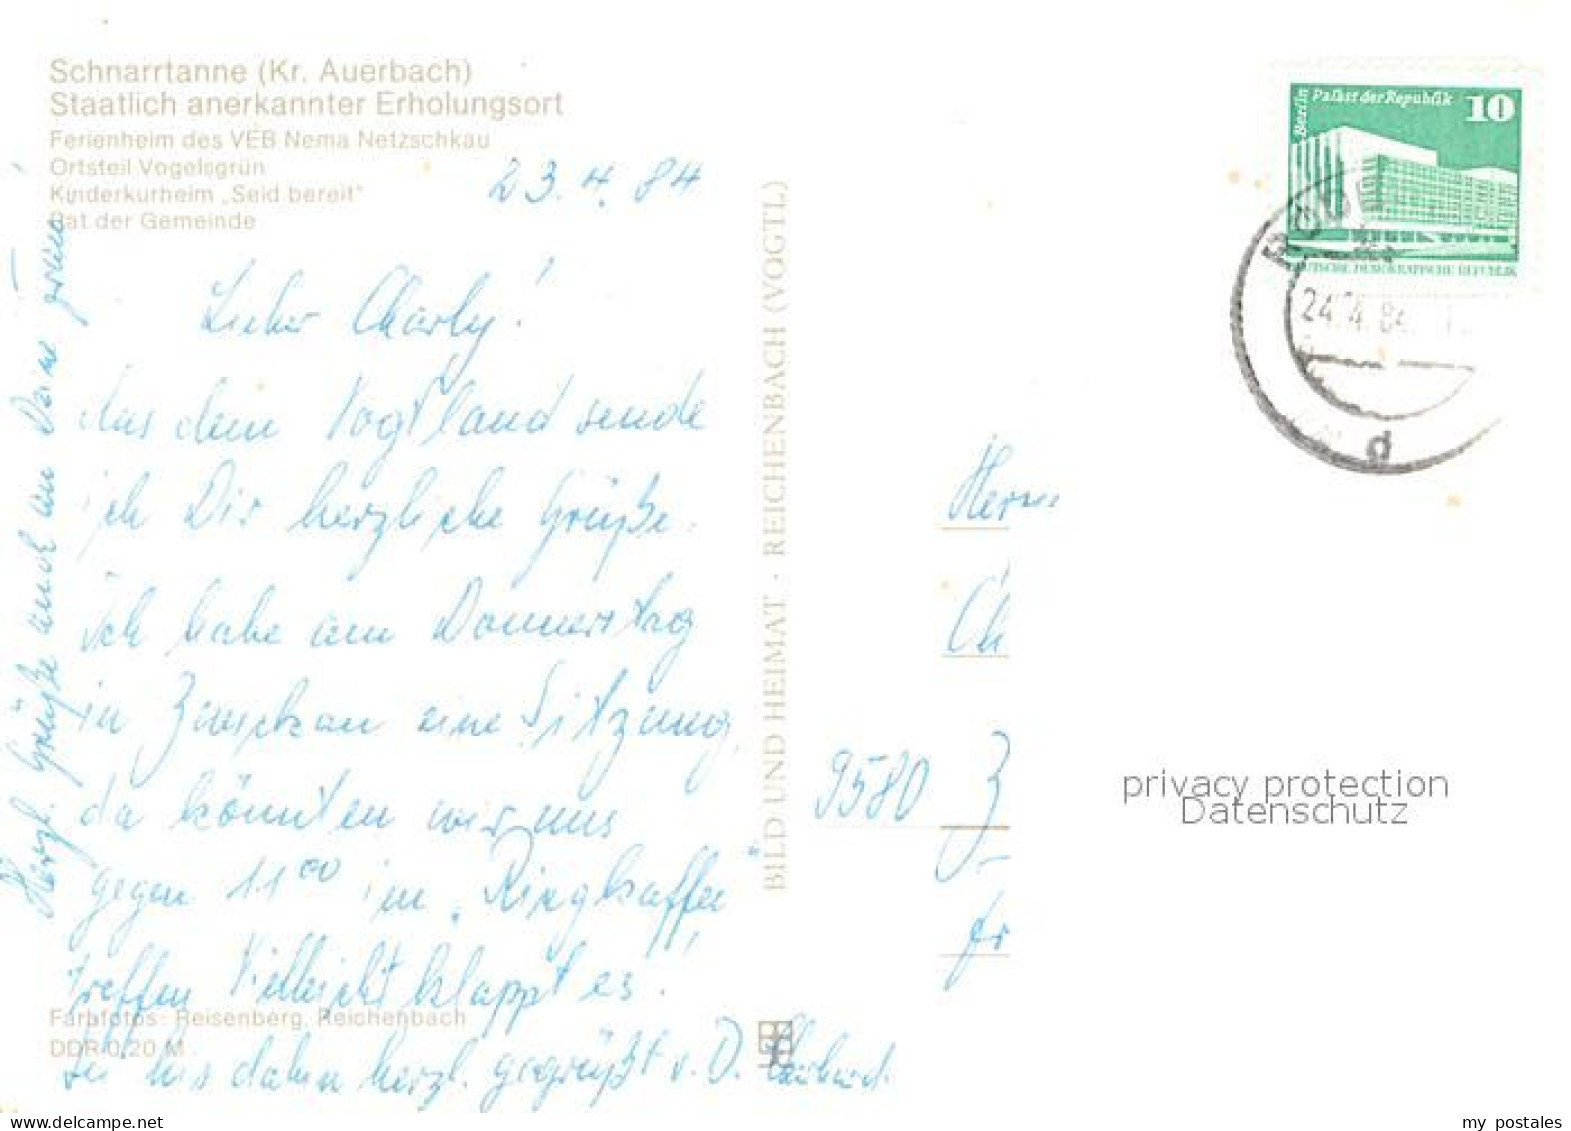 Schnarrtanne (Kr. Auerbach)
Staatlich anerkannter Erholungsort
Ferienheim des VEB Nema Netzschkau
Ortsteil Vogelsgrün
Kinderkurheim „Seid bereit"
Rat der Gemeinde
23.4.84
Lieber Charly!
Aus dem Vogtland sende
ich Dir herzliche Grüße.
Ich habe am Donnerstag
in Zwickau eine Sitzung,
da könnten wir uns
gegen 11 00 im „Ringkaffee"
treffen. Vielleicht klappt es!
bis dahin herzl. gegrüßt v. D.
Herzl. Grüße auch an Deine
Farbfotos: Reisenberg, Reichenbach
DDR 0,20 M
BILD UND HEIMAT · REICHENBACH (VOGTL)
Berlin Palast der Republik 10
DEUTSCHE DEMOKRATISCHE REPUBLIK
24.4.84
d
Herrn
Ch
9580 Z
privacy protection
Datenschutz
delcampe.net
my_postales